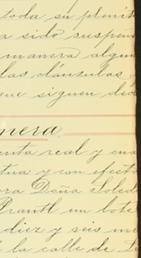 toda su plenit
a sido suspen
manera algun
las cláusulas
ue siguen dec
mera
enta real y en
tua y con efect
ra Doña Soled
Prantl un lote
diez y seis me
la calle de